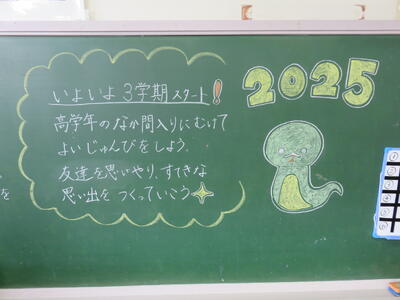 いよいよ3学期スタート!
高学年のなか間入りにむけて
よいじゅんびをしよう。
友達を思いやり、すてきな
思い出をつくっていこう
2025
を